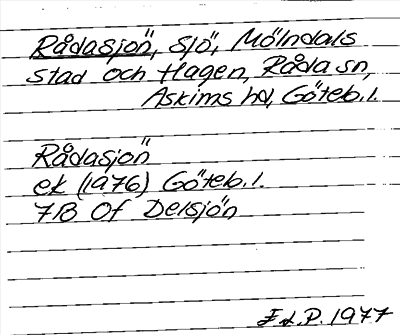 Rådasjön, sjö, Mölndals
stad och Hagen, Råda sn,
Askims hd, Göteb. l.
Rådasjön
ek (1976) Göteb. l.
7B 0f Delsjön
E.d.P. 1977